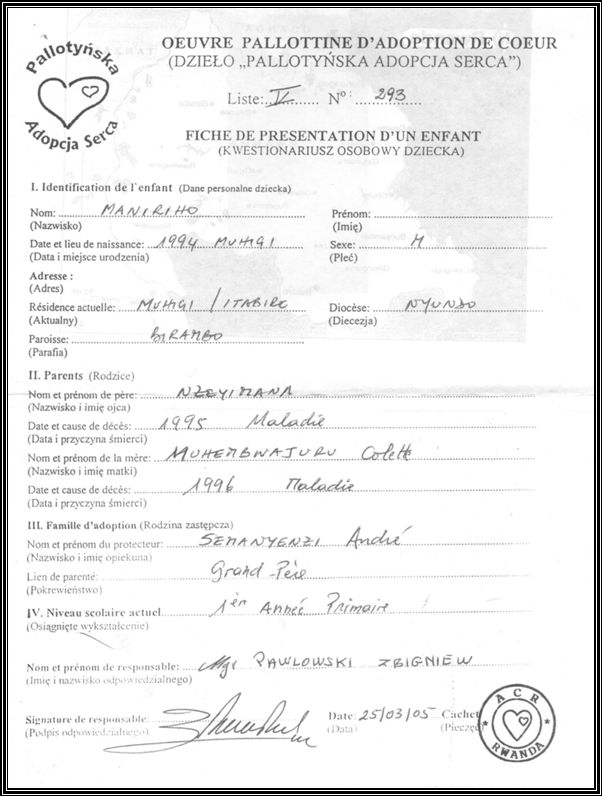 Pallotyńska
Adopcja Serca
OEUVRE PALLOTTINE D'ADOPTION DE COEUR
(DZIEŁO „PALLOTYŃSKA ADOPCJA SERCA")
Liste: V Nº: 293
FICHE DE PRESENTATION D'UN ENFANT
(KWESTIONARIUSZ OSOBOWY DZIECKA)
I. Identification de l'enfant (Dane personalne dziecka)
Nom: MANIRIHO Prénom:
(Nazwisko) (Imię)
Date et lieu de naissance: 1994 MUHIGI Sexe: M
(Data i miejsce urodzenia) (Płeć)
Adresse :
(Adres)
Résidence actuelle: MUHIGI / ITABIRE Diocèse: NYUNDO
(Aktualny) (Diecezja)
Paroisse: BIRAMBO
(Parafia)
II. Parents (Rodzice)
Nom et prénom de père: NZEYIMANA
(Nazwisko i imię ojca)
Date et cause de décès: 1995 Maladie
(Data i przyczyna śmierci)
Nom et prénom de la mère: MUHEMBWAJURU Colette
(Nazwisko i imię matki)
Date et cause de décès: 1996 Maladie
(Data i przyczyna śmierci)
III. Famille d'adoption (Rodzina zastępcza)
Nom et prénom du protecteur: SEMANYENZI André
(Nazwisko i imię opiekuna)
Lien de parenté: Grand-Père
(Pokrewieństwo)
IV. Niveau scolaire actuel 1èr Anneé Primaire
(Osiągnięte wykształcenie)
Nom et prénom de responsable: Mgr PAWLOWSKI ZBIGNIEW
(Imię i nazwisko odpowiedzialnego)
Signature de responsable: Date: 25/03/05 Cachet
(Podpis odpowiedzialnego) (Data) (Pieczęć)
A C R
RWANDA